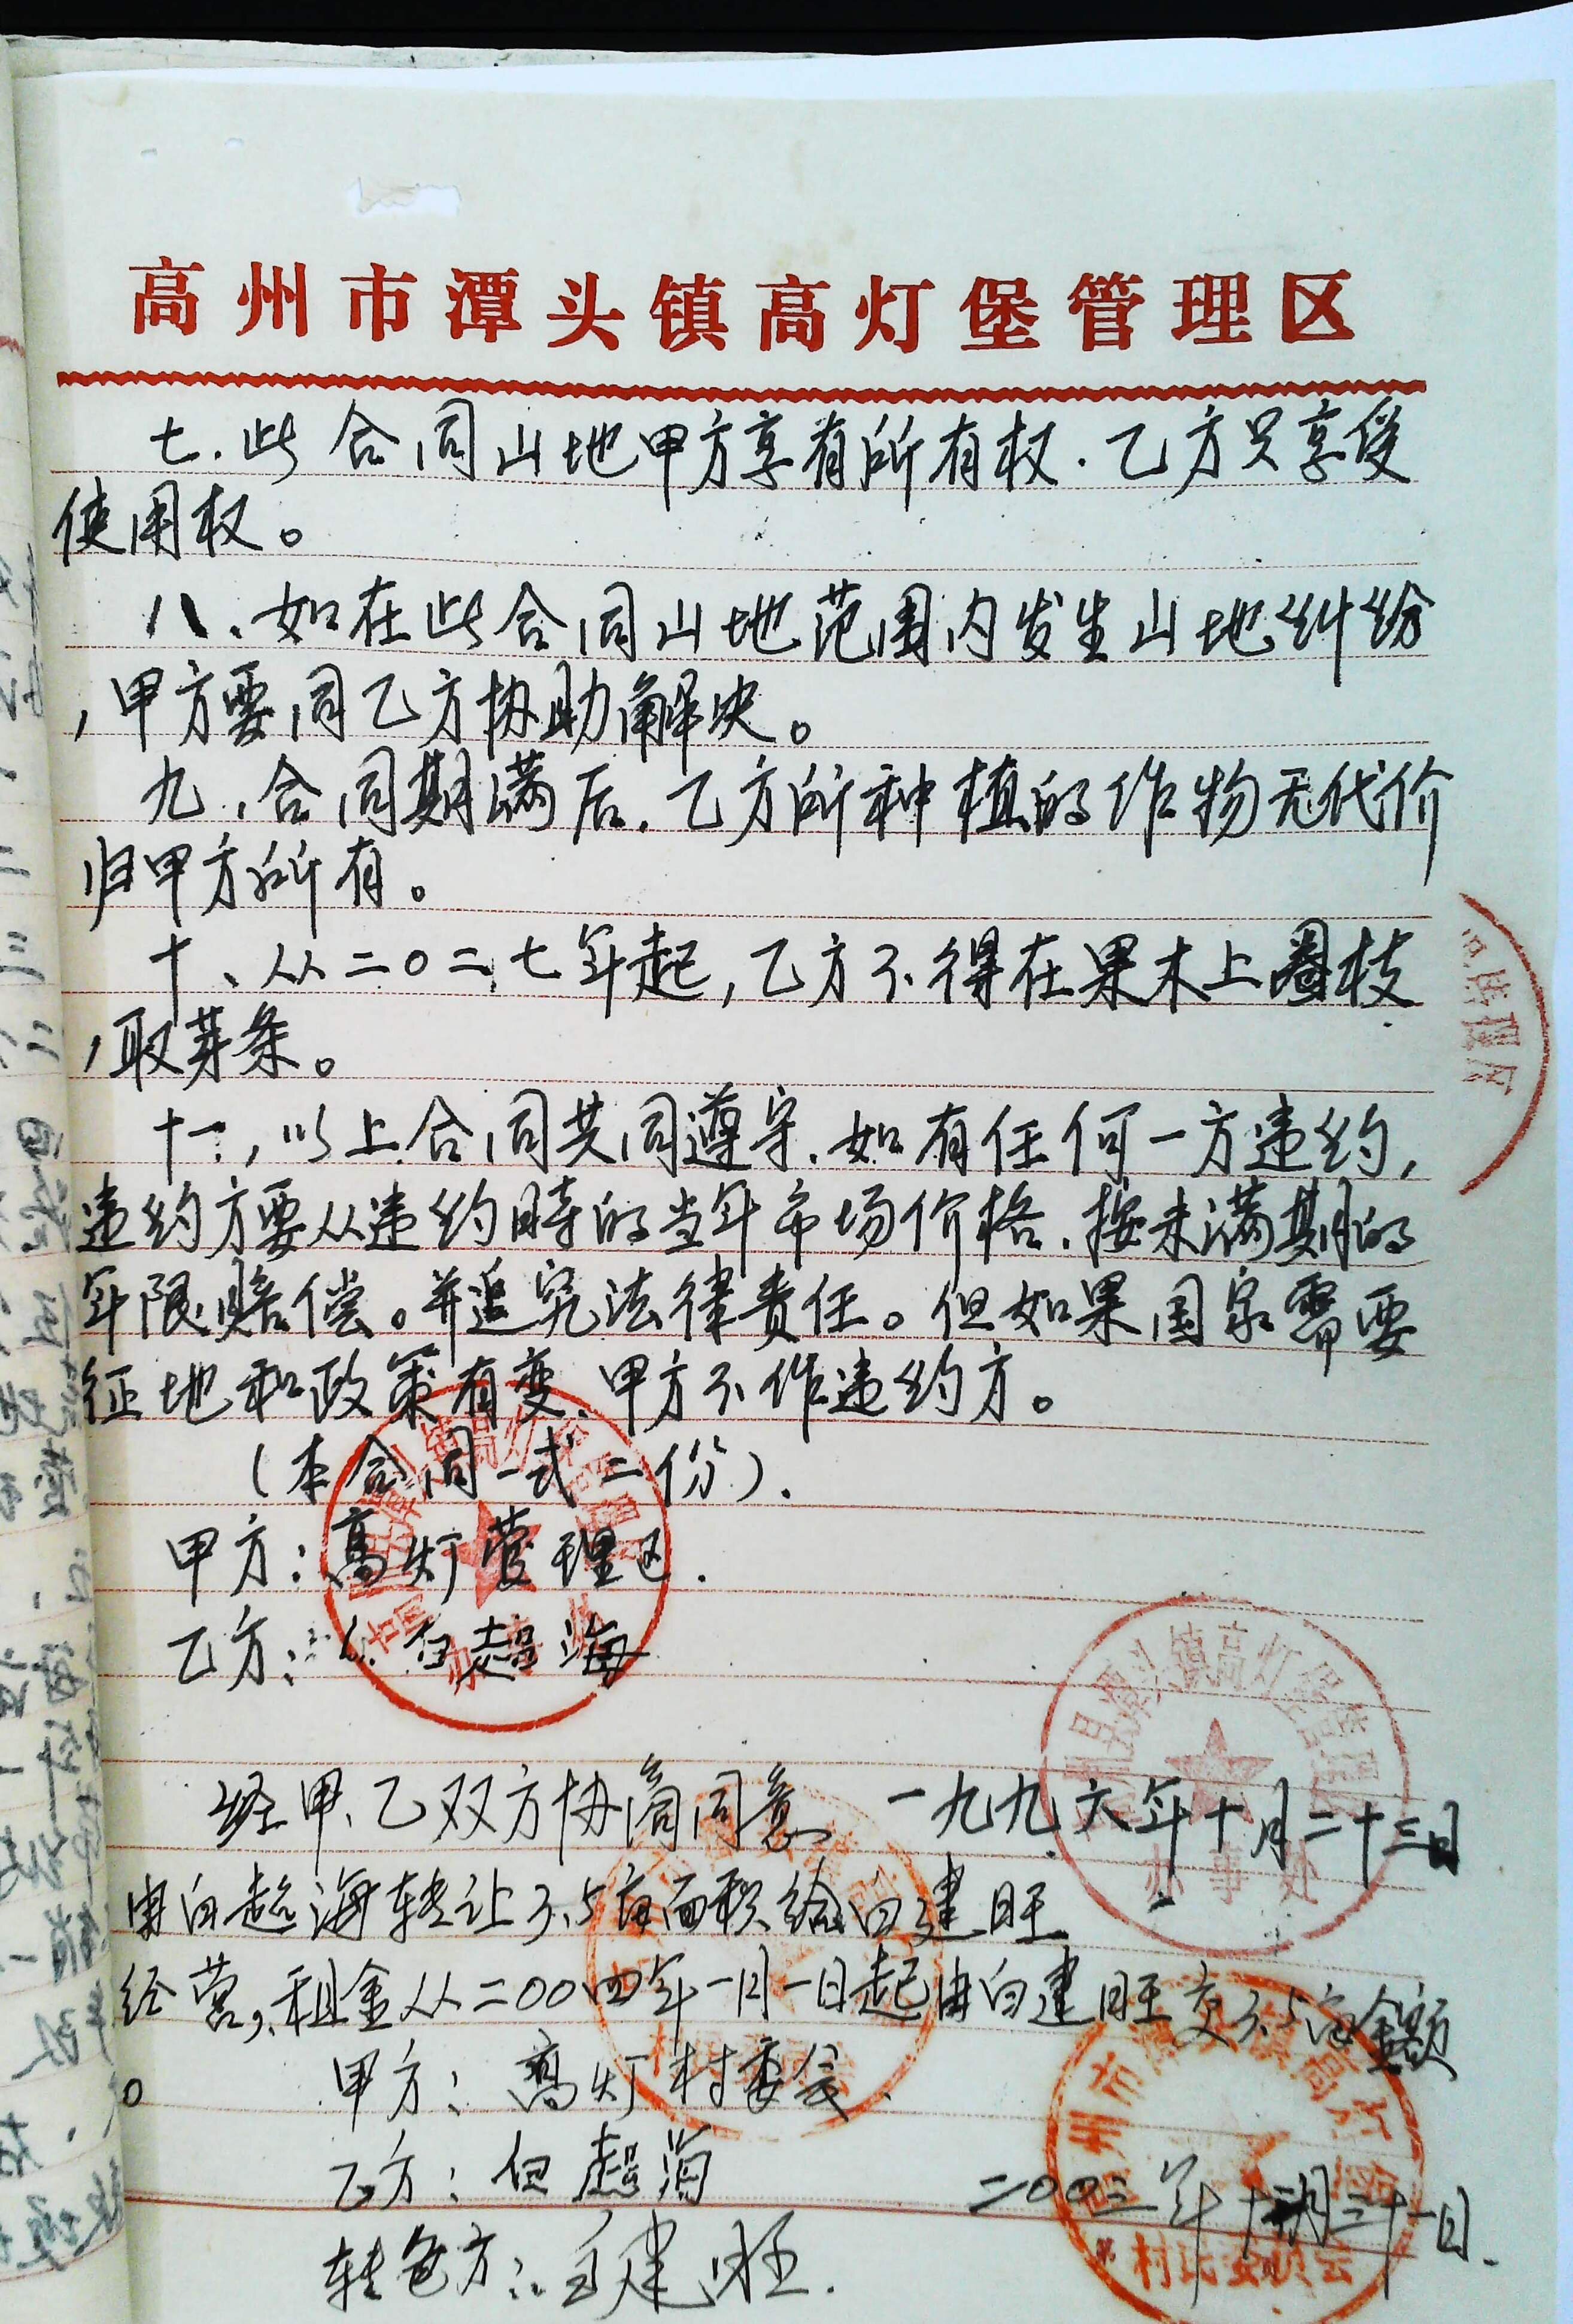 高州市潭头镇高灯堡管理区
七.此合同山地甲方享有所有权.乙方只享受
使用权。
八、如在此合同山地范围内发生山地纠纷
,甲方要同乙方协助解决。
九,合同期满后.乙方所种植的作物无代价
归甲方所有。
十、从二〇二七年起,乙方不得在果木上圈枝
,取芽条。
十一,以上合同共同遵守.如有任何一方违约,
违约方要从违约時的当年市场价格.按未满期的
年限赔偿。并追究法律责任。但如果国家需要
征地和政策有变、甲方不作违约方。
(本合同一式二份).
甲方:高灯管理区.
乙方: 白超海
一九九六年十月二十三日
经甲、乙双方协商同意
由白超海转让3.5亩面积给白建旺
经营,租金从二00四年一月一日起由白建旺交3.5亩金额
。
甲方:高灯村委会.
乙方:白超海
二00三年十二月三十一日.
转包方:白建旺.
潭头镇高灯堡管理区
办事处
村民委员会